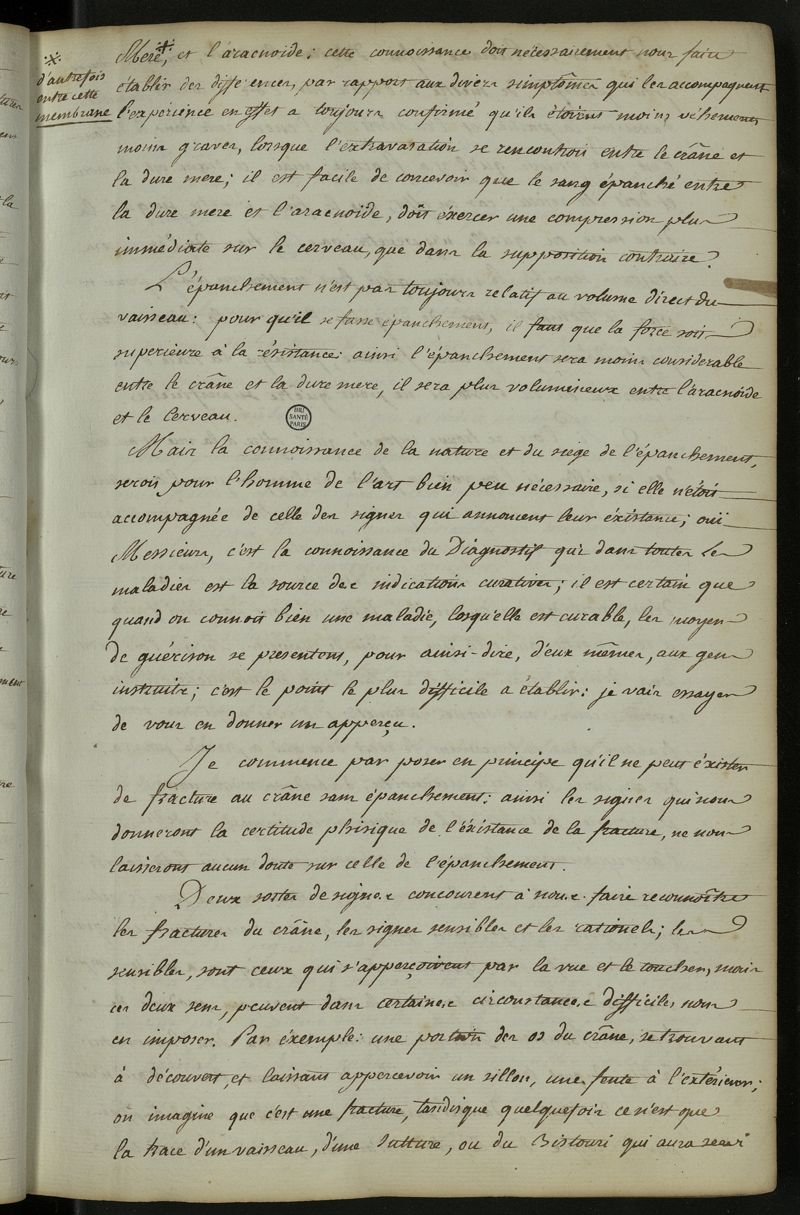 ※
d'autrefois
entre cette
membrane
Mere,※ et l'aracnoide; cette connoissance doit nécessairement nous faire
établir des differences, par rapport aux divers simptômes qui les accompagnent
l'expérience en effet a toujours confirmé qu'ils étoient moins véhemens,
moins graves, lorsque l'extravasation se rencontroit entre le crâne et
la dure mere; il est facile de concevoir que le sang épanché entre
la dure mere et l'aracnoide, doit éxercer une compression plus
immédiate sur le cerveau, que dans la supposition contraire.
L'épanchement n'est pas toujours relatif au volume direct du
vaisseau: pour qu'il se fasse épanchement, il faut que la force soit
superieure à la résistance: ainsi l'épanchement sera moins considerable
entre le crâne et la dure mere, il sera plus volumineux entre l'aracnoïde
et le Cerveau.
BIU
SANTÉ
PARIS
Mais la connoissance de la nature et du siege de l'épanchement,
seroit pour l'homme de l'art bien peu nécessaire, si elle n'étoit
accompagnée de celle des signes qui annoncent leur éxistance; oui
Messieurs, c'est la connoissance du Diagnostif qui dans toutes les
maladies est la source des indications curatives; il est certain que
quand on connoit bien une maladie, lorsqu'elle est curable, les moyens
de guérison se presentent, pour ainsi-dire, d'eux mêmes, aux gens
instruits; c'est le point le plus difficile a établir: je vais essayer
de vous en donner un apperçu.
Je commence par poser en principe qu'il ne peut éxister
de fracture au crâne sans épanchement: ainsi les signes qui nous
donneront la certitude phisique de l'éxistance de la fracture, ne nous
laisseront aucun doute sur celle de l'épanchement.
Deux sortes de signes concourent à nous faire reconnoître
les fractures du crâne, les signes sensibles et les rationels; les
sensibles, sont ceux qui s'apperçoivent par la vue et le toucher, mais
ces deux sens, peuvent dans certaines circonstances difficiles nous
en imposer. Par éxemple: une portion des os du crâne, se trouvant
à découvert, et laissant appercevoir un sillon, une fente à l'extérieur;
on imagine que c'est une fracture, tandisque quelquefois ce n'est que
la trace d'un vaisseau, d'une Sutture, ou du Bistouri qui aura servi